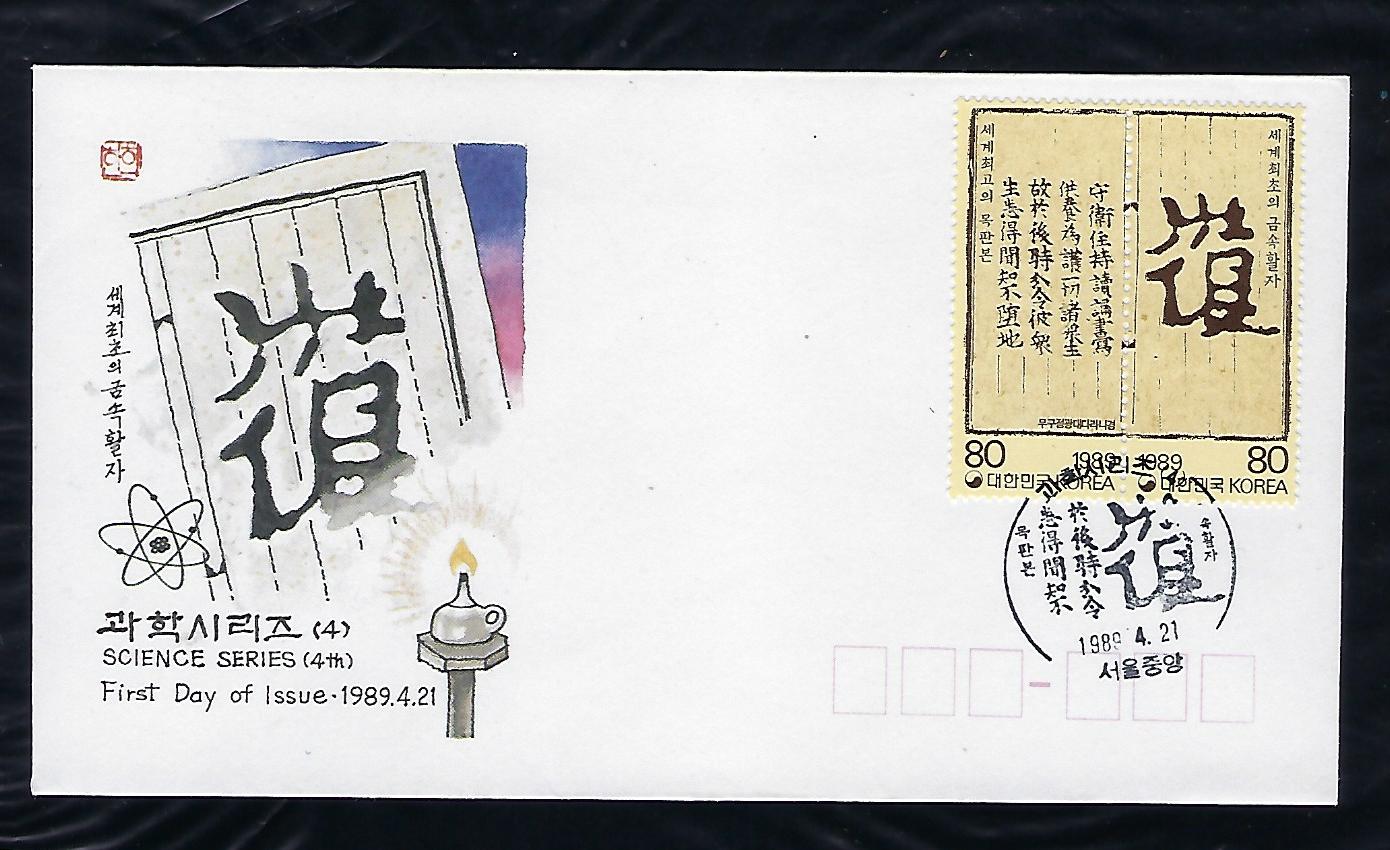 세계최초의 금속활자
과학시리즈 (4)
SCIENCE SERIES (4th)
First Day of Issue·1989.4.21
세계최초의 금속활자
守衛住持讀誦書寫
供養為護一切諸衆生
故於後時分令彼衆
生悉得聞知不墮地
세계최고의 목판본
무구정광대다라니경
80
1989
대한민국 KOREA
1989
80
대한민국 KOREA
과학시리즈
속활자
於後時分令
悉得聞知不
목판본
1989 4. 21
서울중앙